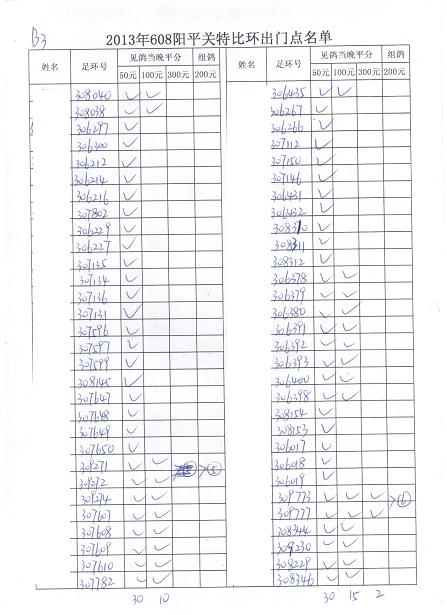 B3
2013年608阳平关特比环出门点名单
姓名 足环号 见鸽当晚平分 组鸽 姓名 足环号 见鸽当晚平分 组鸽
50元 100元 300元 200元 50元 100元 300元 200元
308040 ✓ ✓ 306435 ✓ ✓
308038 ✓ ✓ 306267 ✓
306297 ✓ 306266 ✓
306300 ✓ 307112 ✓
306212 ✓ 307150 ✓
306214 ✓ 307146 ✓
306216 ✓ 306431 ✓
307802 ✓ 306432 ✓
306229 ✓ 308310 ✓
306227 ✓ 308311 ✓
307135 ✓ 308312 ✓
307134 ✓ 306378 ✓ ✓
307136 ✓ 306379 ✓ ✓
307131 ✓ 306380 ✓ ✓
307596 ✓ 306391 ✓ ✓
307597 ✓ 306392 ✓ ✓
307599 ✓ 306393 ✓ ✓
308145 ✓ 306400 ✓ ✓
307647 ✓ 306398 ✓ ✓
307648 ✓ 308154 ✓
307649 ✓ 308153 ✓
307650 ✓ 306017 ✓
309271 ✓ ✓ ⑤ 306018 ✓
309272 ✓ ✓ 306019 ✓
309274 ✓ ✓ 309773 ✓ ✓ ✓ ⑥
307607 ✓ ✓ 309777 ✓ ✓ ✓
307608 ✓ ✓ 308344 ✓ ✓
307609 ✓ ✓ 309230 ✓ ✓
307610 ✓ ✓ 308229 ✓ ✓
307782 ✓ ✓ 308346 ✓ ✓
30 10 30 15 2